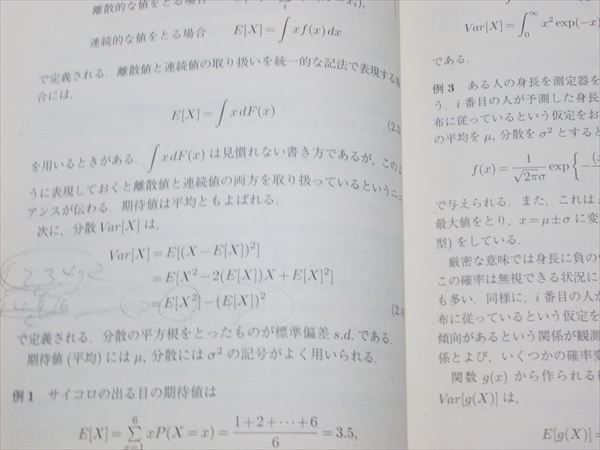 離散的な値をとる場合
連続的な値をとる場合 E[X] = ∫ xf(x)dx
で定義される. 離散値と連続値の取り扱いを統一的な記法で表現する場
合には,
E[X] = ∫ x dF(x)
を用いるときがある. ∫ xdF(x) は見慣れない書き方であるが, このよ
うに表現しておくと離散値と連続値の両方を取り扱っているというニュ
アンスが伝わる. 期待値は平均ともよばれる.
次に, 分散 Var[X] は,
Var[X] = E[(X − E[X])²]
= E[X² − 2(E[X])X + E[X]²]
= E[X²] − (E[X])²
で定義される. 分散の平方根をとったものが標準偏差 s.d. である.
期待値 (平均) には μ, 分散には σ² の記号がよく用いられる.
例1 サイコロの出る目の期待値は
E[X] = Σ xP(X = x) = (1+2+⋯+6)/6 = 3.5,
Var[X] = ∫₀^∞ x² exp(−x)
である.
例3 ある人の身長を測定器を
う. i 番目の人が予測した身長
布に従っているという仮定をお
の平均を μ, 分散を σ² とすると
f(x) = 1/√2πσ exp{−
で与えられる. また, これは
最大値をとり, x = μ±σ に変
型) をしている.
厳密な意味では身長に負の
この確率は無視できる状況に
も多い. 同様に, i 番目の人が
布に従っているという仮定を
傾向があるという関係が観測
係とよび, いくつかの確率変
関数 g(x) から作られる
Var[g(X)] は,
E[g(X)] =